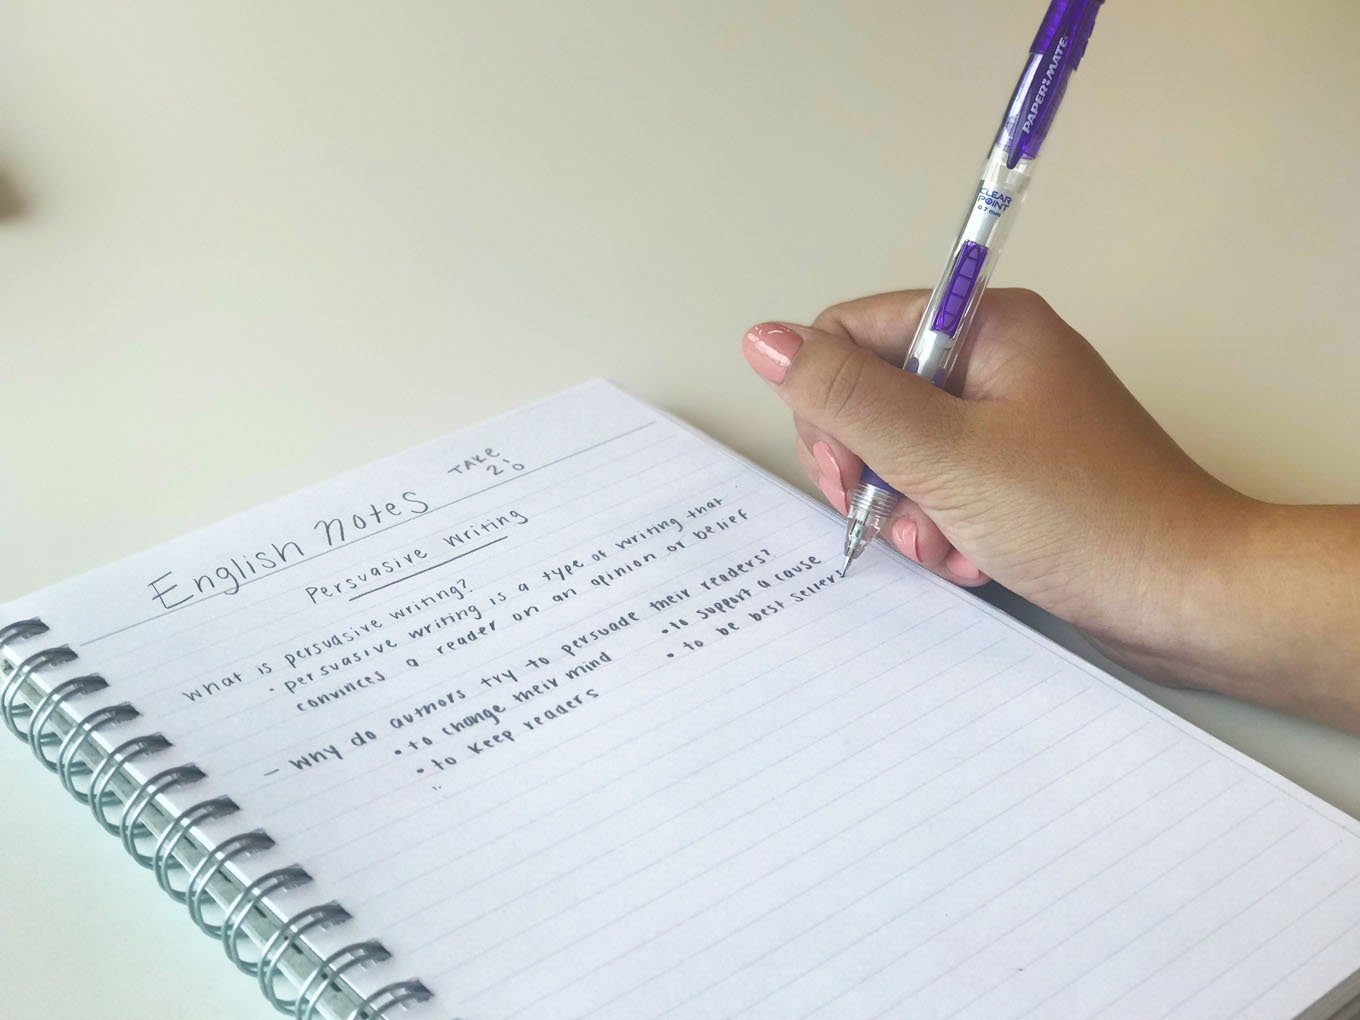 TAKE
2:0
English Notes
Persuasive Writing
What is persuasive writing?
• persuasive writing is a type of writing that
convinces a reader on an opinion or belief
- Why do authors try to persuade their readers?
• to change their mind
• to keep readers
• to support a cause
• to be best sellers
PAPER MATE
CLEAR
POINT
0.7 mm